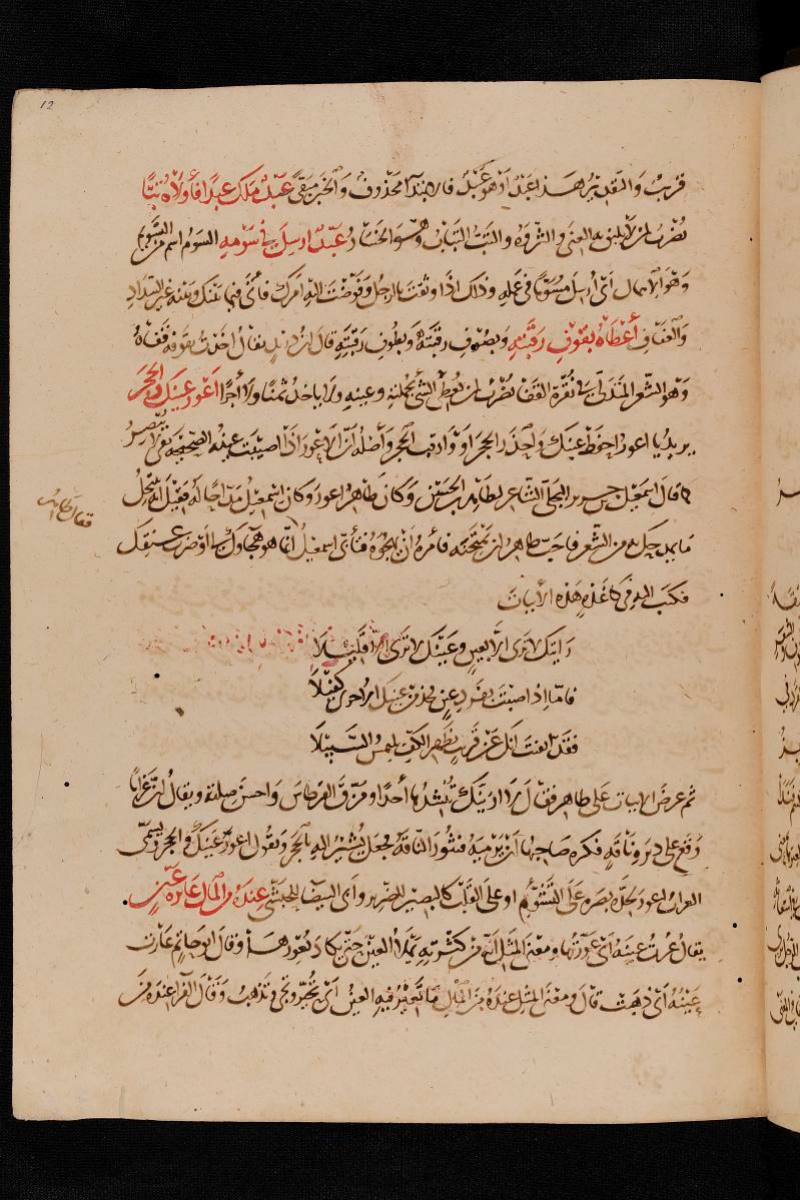 12
قريب والتقدير هذا عبد او هو عبد فالمبتدا محذوف والخبر مبقى عبد ملك عبدا فأولاه تبا
يضرب لمن لا يليق به الغنى والثروة والتب التباب وهو الخسار عبد ارسل في سومه السوم اسم من التسويم
وهو الاهمال اى أرسل مسوما فى عمله وذلك اذا وثقت بالرجل وفوضت اليه امرك فأتى فيما بينك وبينه غير السداد
والعفاف أعطاه بقوف رقبته وبصوف رقبته وبطوف رقبته قال ابن دريد يقال اخذت بقوفة قفاه
وهو الشعر المتدلى فى نقرة القفا يضرب لمن يعطى الشئ بجملته وعينه ولا ياخذ ثمنا ولا أجرا اعور عينك والحجر
يريد يا اعور احفظ عينك واحذر الحجر او وارقب الحجر وأصله أن الاعور اذا اصيبت عينه الصحيحة بقى لا يبصر
كما قال اسمعيل بن جرير البجلى الشاعر لطاهر بن الحسين وكان طاهر اعور وكان اسمعيل مداحا له فقيل انه ينتحل
ما يمدحك به من الشعر فاحب طاهر ان يمتحنه فأمره أن يهجوه فأبى اسمعيل انما هو هجاؤك لى او ضرب عنقك
فكتب اليه فى كاغذ هذه الابيات
رايتك لا ترى الا بعين وعينك لا ترى الا قليلا
فاما اذ اصبت بفرد عين فخذ من عينك الاخرى كفيلا
فقد ايقنت انك عن قريب بظهر الكف تلمس السبيلا
ثم عرض الابيات على طاهر فقال لا ارينك تنشدها أحدا ومزق القرطاس واحسن صلته ويقال ان غرابا
وقع على دبر وناقة فكره صاحبها ان يرميه فتثور الناقة فجعل يشير اليه بالحجر ويقول اعور عينك والحجر ويسمى
الغراب اعور لحدة بصره على التشؤم او على القلب كالبصير للضرير وأبى البيضا للحبشى عنده من المال عائرة عين
يقال عرت عينه اى عورتها ومعنى المثل انه من كثرته يملأ العين حتى يكاد يعورها وقال ابو حاتم عارت
عينه أى ذهبت قال ومعنى المثل عنده من المال ما تعير فيه العين أى تحير وتجى وتذهب وقال الفرا عنده من